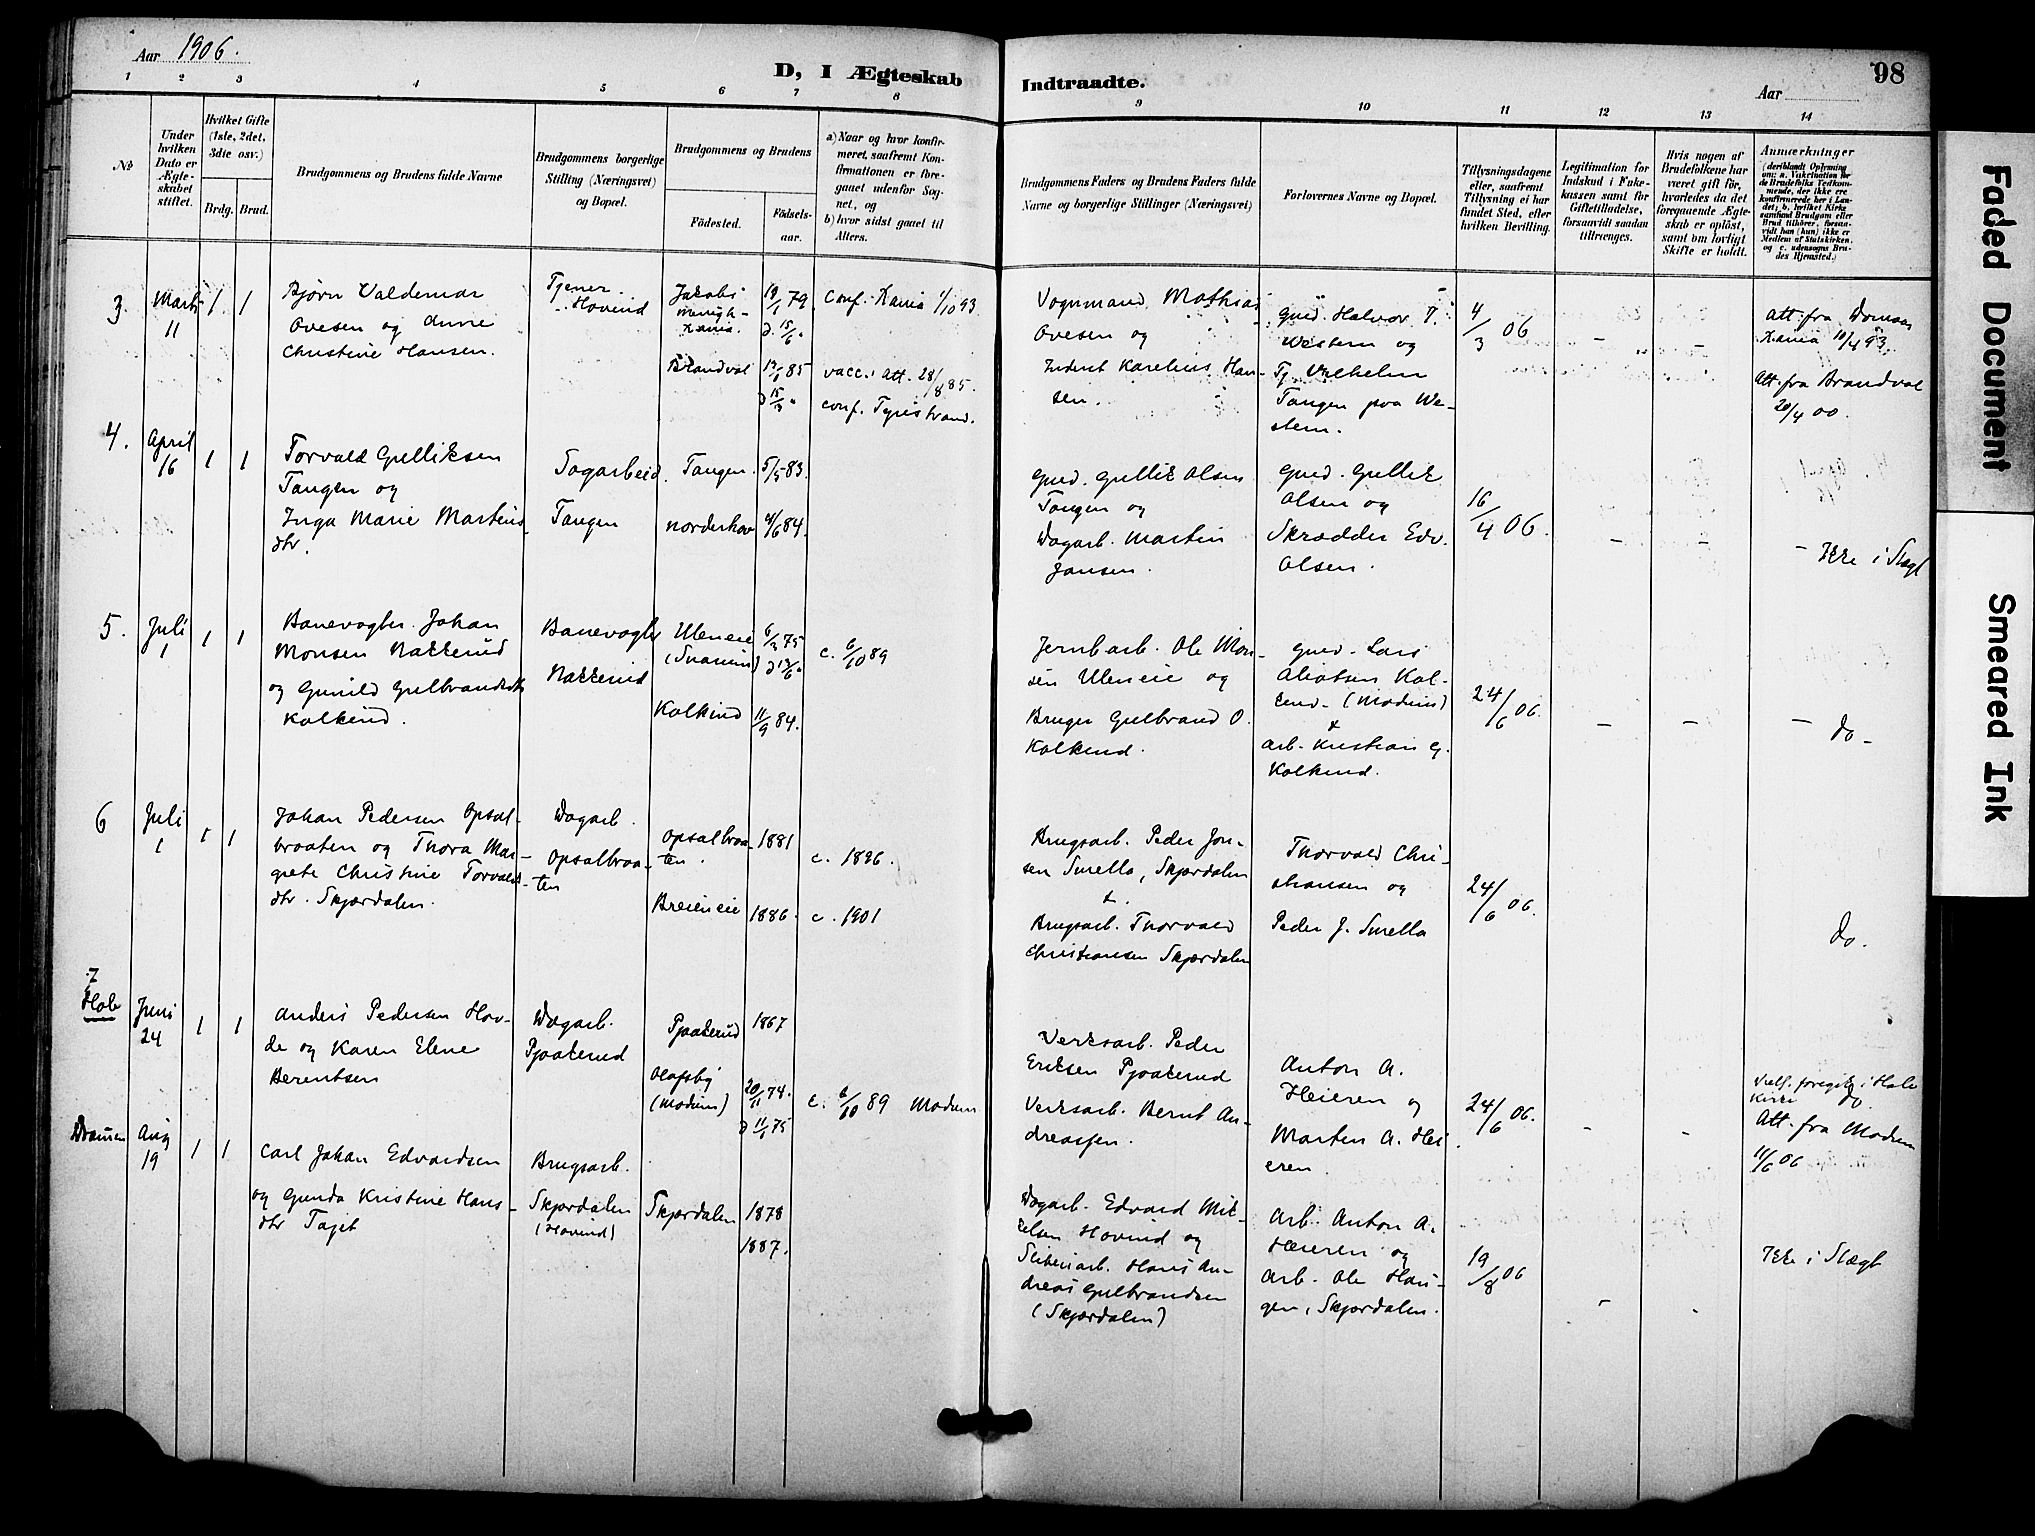 Aar 1906.
D, I Ægteskab Indtraadte.
98
Aar
1 2 3 4 5 6 7 8 9 10 11 12 13 14
No
Under hvilken Dato er Ægteskabet stiftet.
Hvilket Gifte (1ste, 2det, 3die osv.)
Brdg. Brud.
Brudgommens og Brudens fulde Navne
Brudgommens borgerlige Stilling (Næringsvei) og Bopæl.
Brudgommens og Brudens
Födested.
Födsels-aar.
a) Naar og hvor konfirmeret, saafremt Konfirmationen er foregaaet udenfor Sognet, og
b) hvor sidst gaaet til Alters.
Brudgommens Faders og Brudens Faders fulde Navne og borgerlige Stillinger (Næringsvei)
Forlovernes Navne og Bopæl.
Tillysningsdagene eller, saafremt Tillysning ei har fundet Sted, efter hvilken Bevilling.
Legitimation for Indskud i Enkekassen samt for Giftetilladelse, forsaavidt saadan tiltrænges.
Hvis nogen af Brudefolkene har været gift för, hvorledes da det foregaaende Ægteskab er oplöst, samt om lovligt Skifte er holdt.
Anmærkninger
3. Marts 11 1 1
Bjørn Valdemar
Ovesen og Anne
Christine Hansen.
Tjener
Hovind
Jakobs
menigh.
Kania.
79
Brandval
85
Conf. Kania 1/10 93
vacc. Att. 28/8 85.
conf. Tyristrand.
Vognmand Mathias
Ovesen og
Inderst Karelius Han-
sen.
Gmd. Halvor T.
Western og
Tj. Vilhelm
Tangen paa We-
stern.
4/3 06
Att. fra
Kania 10/4 93
Att. fra Brandval
20/4 00.
4. April 16 1 1
Torvald Gulliksen
Tangen og
Inga Marie Martins
dtr.
Sagarbeid.
Tangen
Tangen 5/5 83.
Norderhov 4/6 84.
Gmd. Gullik Olsen
Tangen og
Dagarb. Martin
Jansen.
Gmd. Gullik
Olsen og
Skrædder Edv.
Olsen.
16/4 06.
Ikke i Slægt
5. Juli 1 1 1
Banevogter Johan
Monsen Nakkerud
og Gunild Gulbrandsdtr
Kolkind.
Banevogter
Nakkerud
Uleneie
(Snarum)
75
Kolkind 11/9 84.
c. 6/10 89
Jernbarb. Ole Mon-
sen Uleneie og
Bruger Gulbrand O.
Kolkind.
Gmd. Lars
(Modum)
Arb. Kristian G.
Kolkind.
24/6 06.
do
6 Juli 1 1 1
Johan Pedersen Opsal-
braaten og Thora Mar-
grete Christine Torvalds-
dtr. Skjærdalen.
Dagarb.
Opsalbraa-
ten
Opsalbraa-
ten.
1881
Breieneie 1886.
c. 1896.
c. 1901
Brugsarb. Peder Jon-
sen Smella, Skjærdalen
Brugsarb. Thorvald
Christiansen Skjærdalen
Thorvald Chri-
stiansen og
Peder J. Smella
24/6 06.
do.
7
Hole Juni 24 1 1
Anders Pedersen Hov-
de og Karen Elene
Berentsen
Dagarb.
Pjaakerud
Pjaakerud 1867
Olafsby
(Modum)
20/11 74.
75
c. 6/10 89 Modum
Verksarb. Peder
Eriksen Pjaakerud
Verksarb. Bernt An-
dreassen.
Anton A.
Heieren og
Marten A. Hei-
eren.
24/6 06.
Vielf. foregik i Hole
Kirke do
Att. fra Modum
11/6 06
Drammen Aug 19 1 1
Carl Johan Edvardsen
og Gunda Kristine Hans-
dtr Tajet
Brugsarb.
Skjærdalen
(Hovind)
Skjærdalen 1878
1887.
Dagarb. Edvard Mik-
kelsen Hovind og
Sliberiarb. Hans An-
dreas Gulbrandsen
(Skjærdalen)
Arb. Anton A.
Heieren og
Arb. Ole Hau-
gen, Skjærdalen.
19/8 06
Ikke i Slægt
Faded Document
Smeared Ink